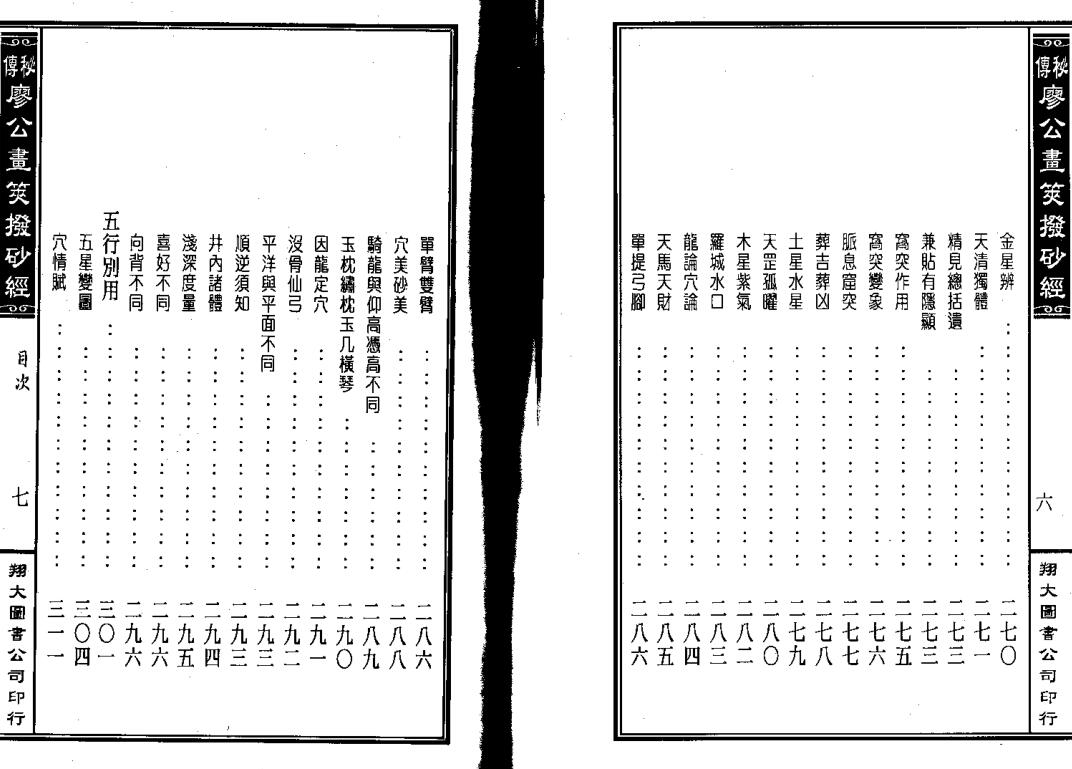 秘傳廖公畫筴撥砂經
六
翔大圖書公司印行
金星辨……二七〇
天清獨體……二七一
精見總括遺……二七三
兼貼有隱顯……二七三
窩突作用……二七五
窩突變象……二七六
脈息窟突……二七七
葬吉葬凶……二七八
土星水星……二七九
天罡孤曜……二八〇
木星紫氣……二八二
羅城水口……二八三
龍論穴論……二八四
天馬天財……二八五
單提弓腳……二八六
單臂雙臂……二八六
穴美砂美……二八八
騎龍與仰高憑高不同……二八九
玉枕繡枕玉几橫琴……二九〇
因龍定穴……二九一
沒骨仙弓……二九二
平洋與平面不同……二九三
順逆須知……二九三
井內諸體……二九四
淺深度量……二九五
喜好不同……二九六
向背不同……二九六
五行別用……三〇一
五星變圖……三〇四
穴情賦……三一一
秘傳廖公畫筴撥砂經
目次
七
翔大圖書公司印行